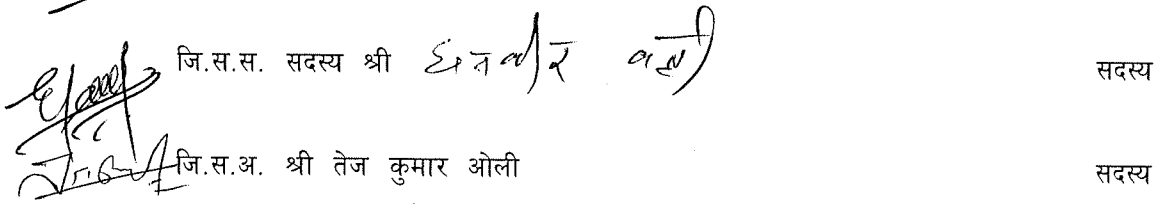 जि.स.स. सदस्य श्री धनवीर वली सदस्य
जि.स.अ. श्री तेज कुमार ओली सदस्य